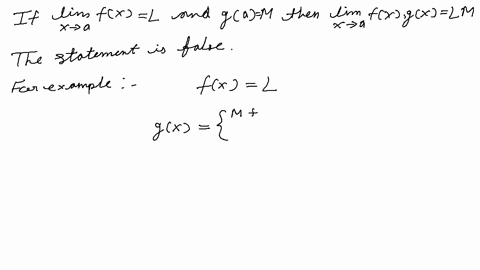 If lim x→a f(x) = L and g(a)=M then lim x→a f(x).g(x) = LM
The statement is false.
For example :- f(x) = L
g(x) = { M +